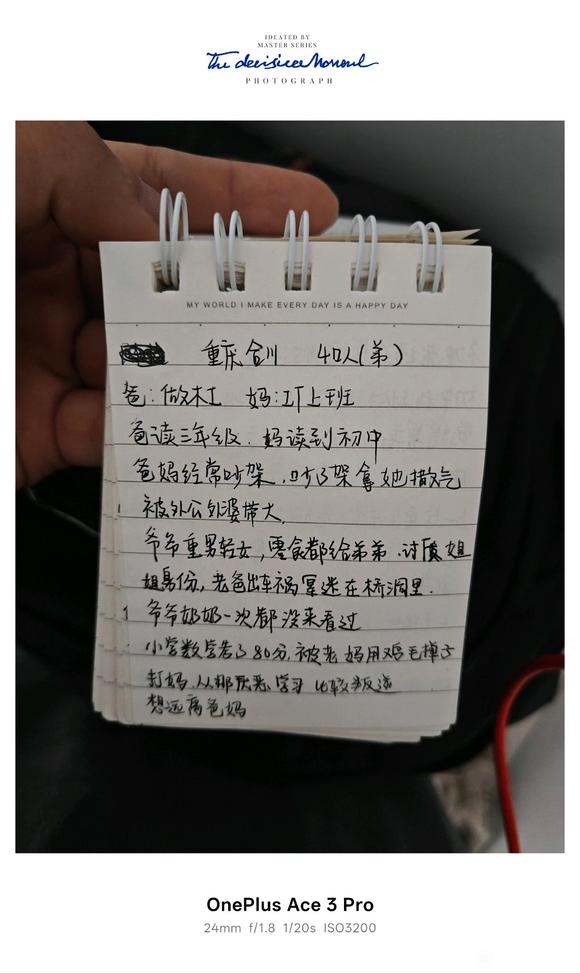 IDEATED BY
MASTER SERIES
The decisive Moment
PHOTOGRAPH
MY WORLD I MAKE EVERY DAY IS A HAPPY DAY
重庆合川 4口人(弟)
爸:做木工 妈:工厂上班
爸读三年级. 妈读到初中
爸妈经常吵架,吵了架拿她撒气
被外公外婆带大.
爷爷重男轻女,零食都给弟弟.讨厌姐
姐身份,老爸出车祸昏迷在桥洞里.
爷爷奶奶一次都没来看过
小学数学考了80分,被老妈用鸡毛掸子
打妈,从那厌恶学习 比较叛逆
想远离爸妈
OnePlus Ace 3 Pro
24mm f/1.8 1/20s ISO3200